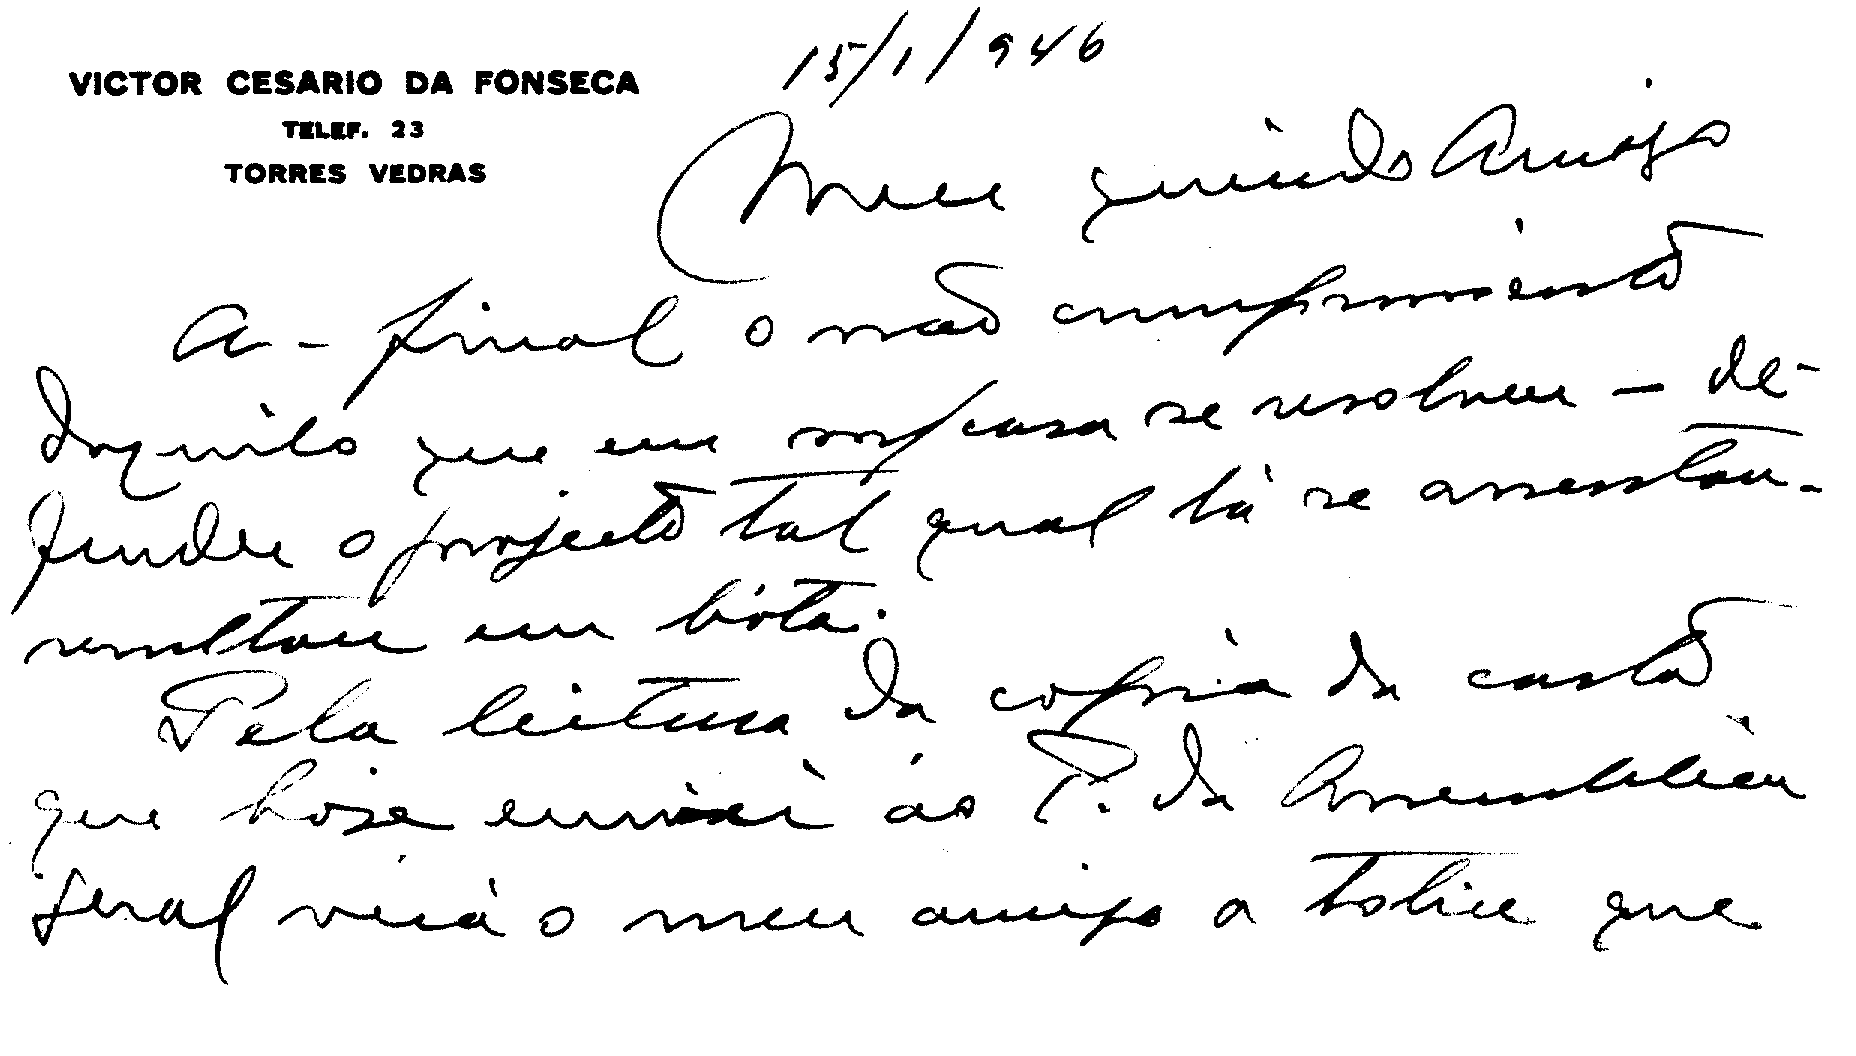 15/1/946
VICTOR CESARIO DA FONSECA
TELEF. 23
TORRES VEDRAS
Meu querido Amigo
A-final o não cumprimento
daquilo que em s/casa se resolveu - de-
fender o projecto tal qual lá se assentou -
resultou em bota.
Pela leitura da copia da cartã
que hoje enviei ao P. da Assembleia
Geral verá o meu amigo a tolice que